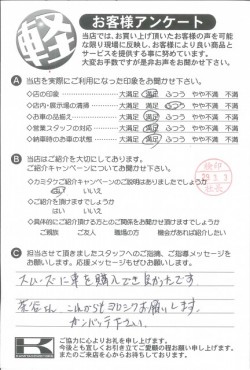 軽
お客様アンケート
当店では、お買い上げ頂いたお客様の声を可能
な限り現場に反映し、お客様により良い商品と
サービスを提供する事に努めています。
大変お手数ですが是非お声をお聞かせ下さい。
A 当店を実際にご利用になった印象をお聞かせ下さい。
◇店の印象 大満足 満足 ふつう やや不満 不満
◇店内・展示場の清掃 大満足 満足 ふつう やや不満 不満
◇お車の品揃え 大満足 満足 ふつう やや不満 不満
◇営業スタッフの対応 大満足 満足 ふつう やや不満 不満
◇納車時のお車の状態 大満足 満足 ふつう やや不満 不満
B 当店はご紹介を大切にしております。
ご紹介キャンペーンについてお聞かせ下さい。
◇カミタケご紹介キャンペーンのご説明はありましたでしょうか
はい いいえ
◇ご紹介を頂けますでしょうか
はい いいえ
◇具体的にご紹介頂ける方とのご関係をお聞かせ頂けますでしょうか
ご親族 ご友人 職場の方 機会があれば紹介したい
C 担当させて頂きましたスタッフへのご指摘、ご指導メッセージを
お願いします。応援メッセージもぜひお願いします。
スムーズに車を購入でき良かったです。
これからもヨロシクお願いします。
ガンバッテ下さい。
K
ご協力に心よりお礼を申し上げます。
今後とも宜しくお引き立てご愛顧の程お願い申し上げます。
またのご来店を心からお待ちしております。